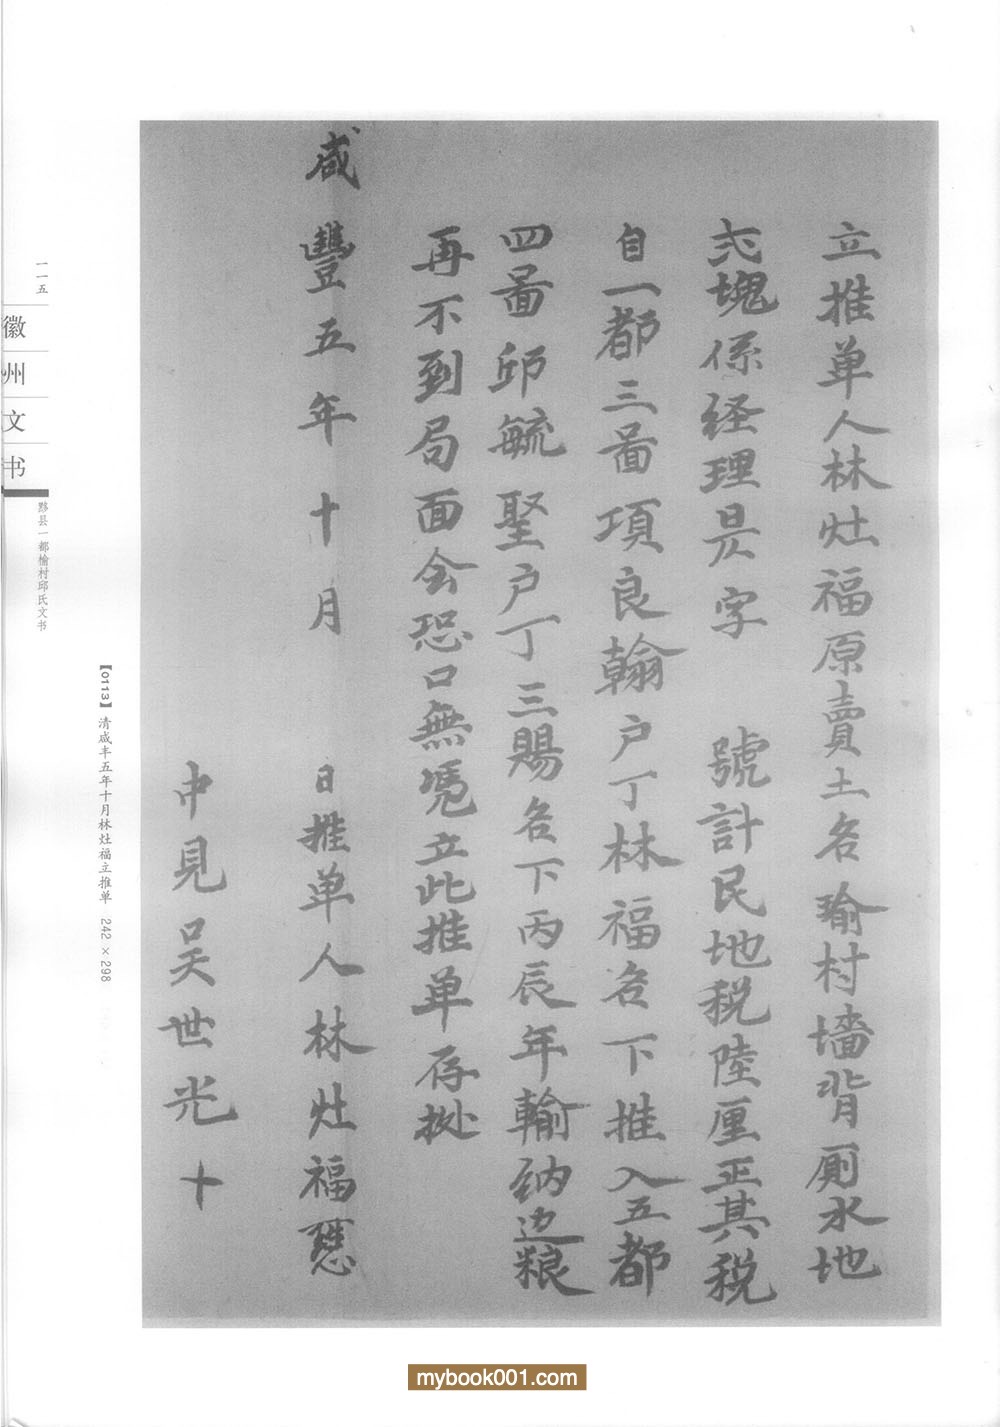 立推单人林灶福原賣土名瑜村墻背厕水地
弍塊係经理昃字 號計民地税陸厘正其税
自一都三啚項良翰户丁林福名下推入五都
四啚邱毓聖户丁三賜名下丙辰年輸纳边粮
再不到局面会恐口無凴立此推单存㨿
咸豐五年十月 日推单人林灶福
中見吴世光十
【0113】清咸丰五年十月林灶福立推单 242×298
一一五
徽州文书
黟县一都榆村邱氏文书
mybook001.com